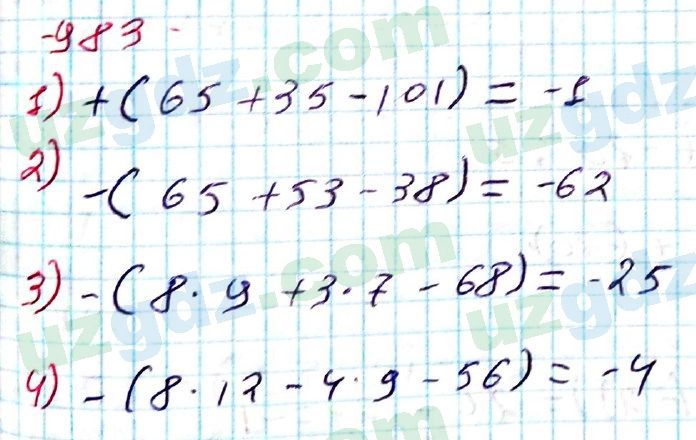 983
1) +(65 +35 -101) = -1
2) -(65 +53 -38) = -62
3) -(8·9 +3·7 -68) = -25
4) -(8·12 -4·9 -56) = -4
uzgdz.com
uzgdz.com
uzgdz.com
uzgdz
uzgdz